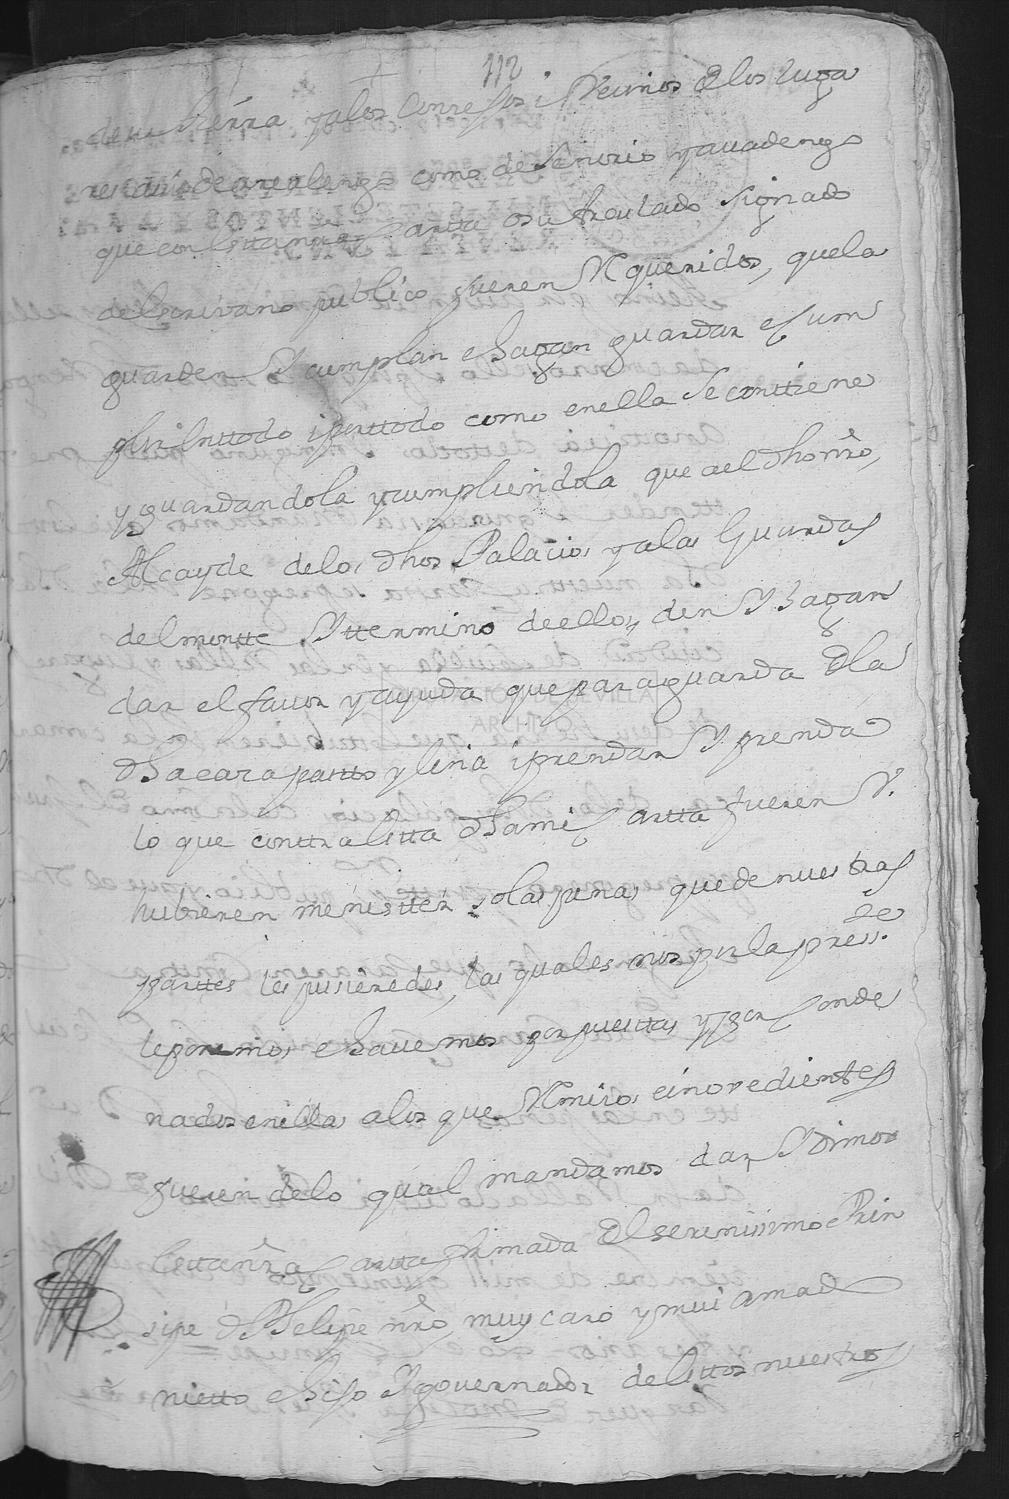 112
de su tierra y a los Conzejos i Vecinos de los luga
res assi de realengo como de Señorio y auadengo
que con estta nrâ Cartta o su traslado signado
de escrivano publico fueren Requeridos, que la
guarden Y cumplan e hagan guardar e cum
plir enttodo i porttodo como en ella se conttiene
y guardandola y cumpliendola que a el dho nrô,
Alcayde de los dhos Palacios y a las Guardas
del montte Y ttermino de ellos, den Y hagan
dar el favor y ayuda que para guarda de la
dha caza pastto y leña i prendar Y prenda
lo que conttra estta dha mi Cartta fueren Y.
hubieren menestter, so las penas que de nuestras
parttes les pusieredes, las quales nos por la press.te
le ponemos e havemos por puesttas y por conde
nados en ellas a los que Remisos e inovedienttes
fueren de lo qual mandamos dar Y dimos
estta nrâ Cartta firmada del serenissimo Prin
sipe dn Phelipe nrô, muy caro y mui amado
nietto e hijo Y governador de esttos nuestros